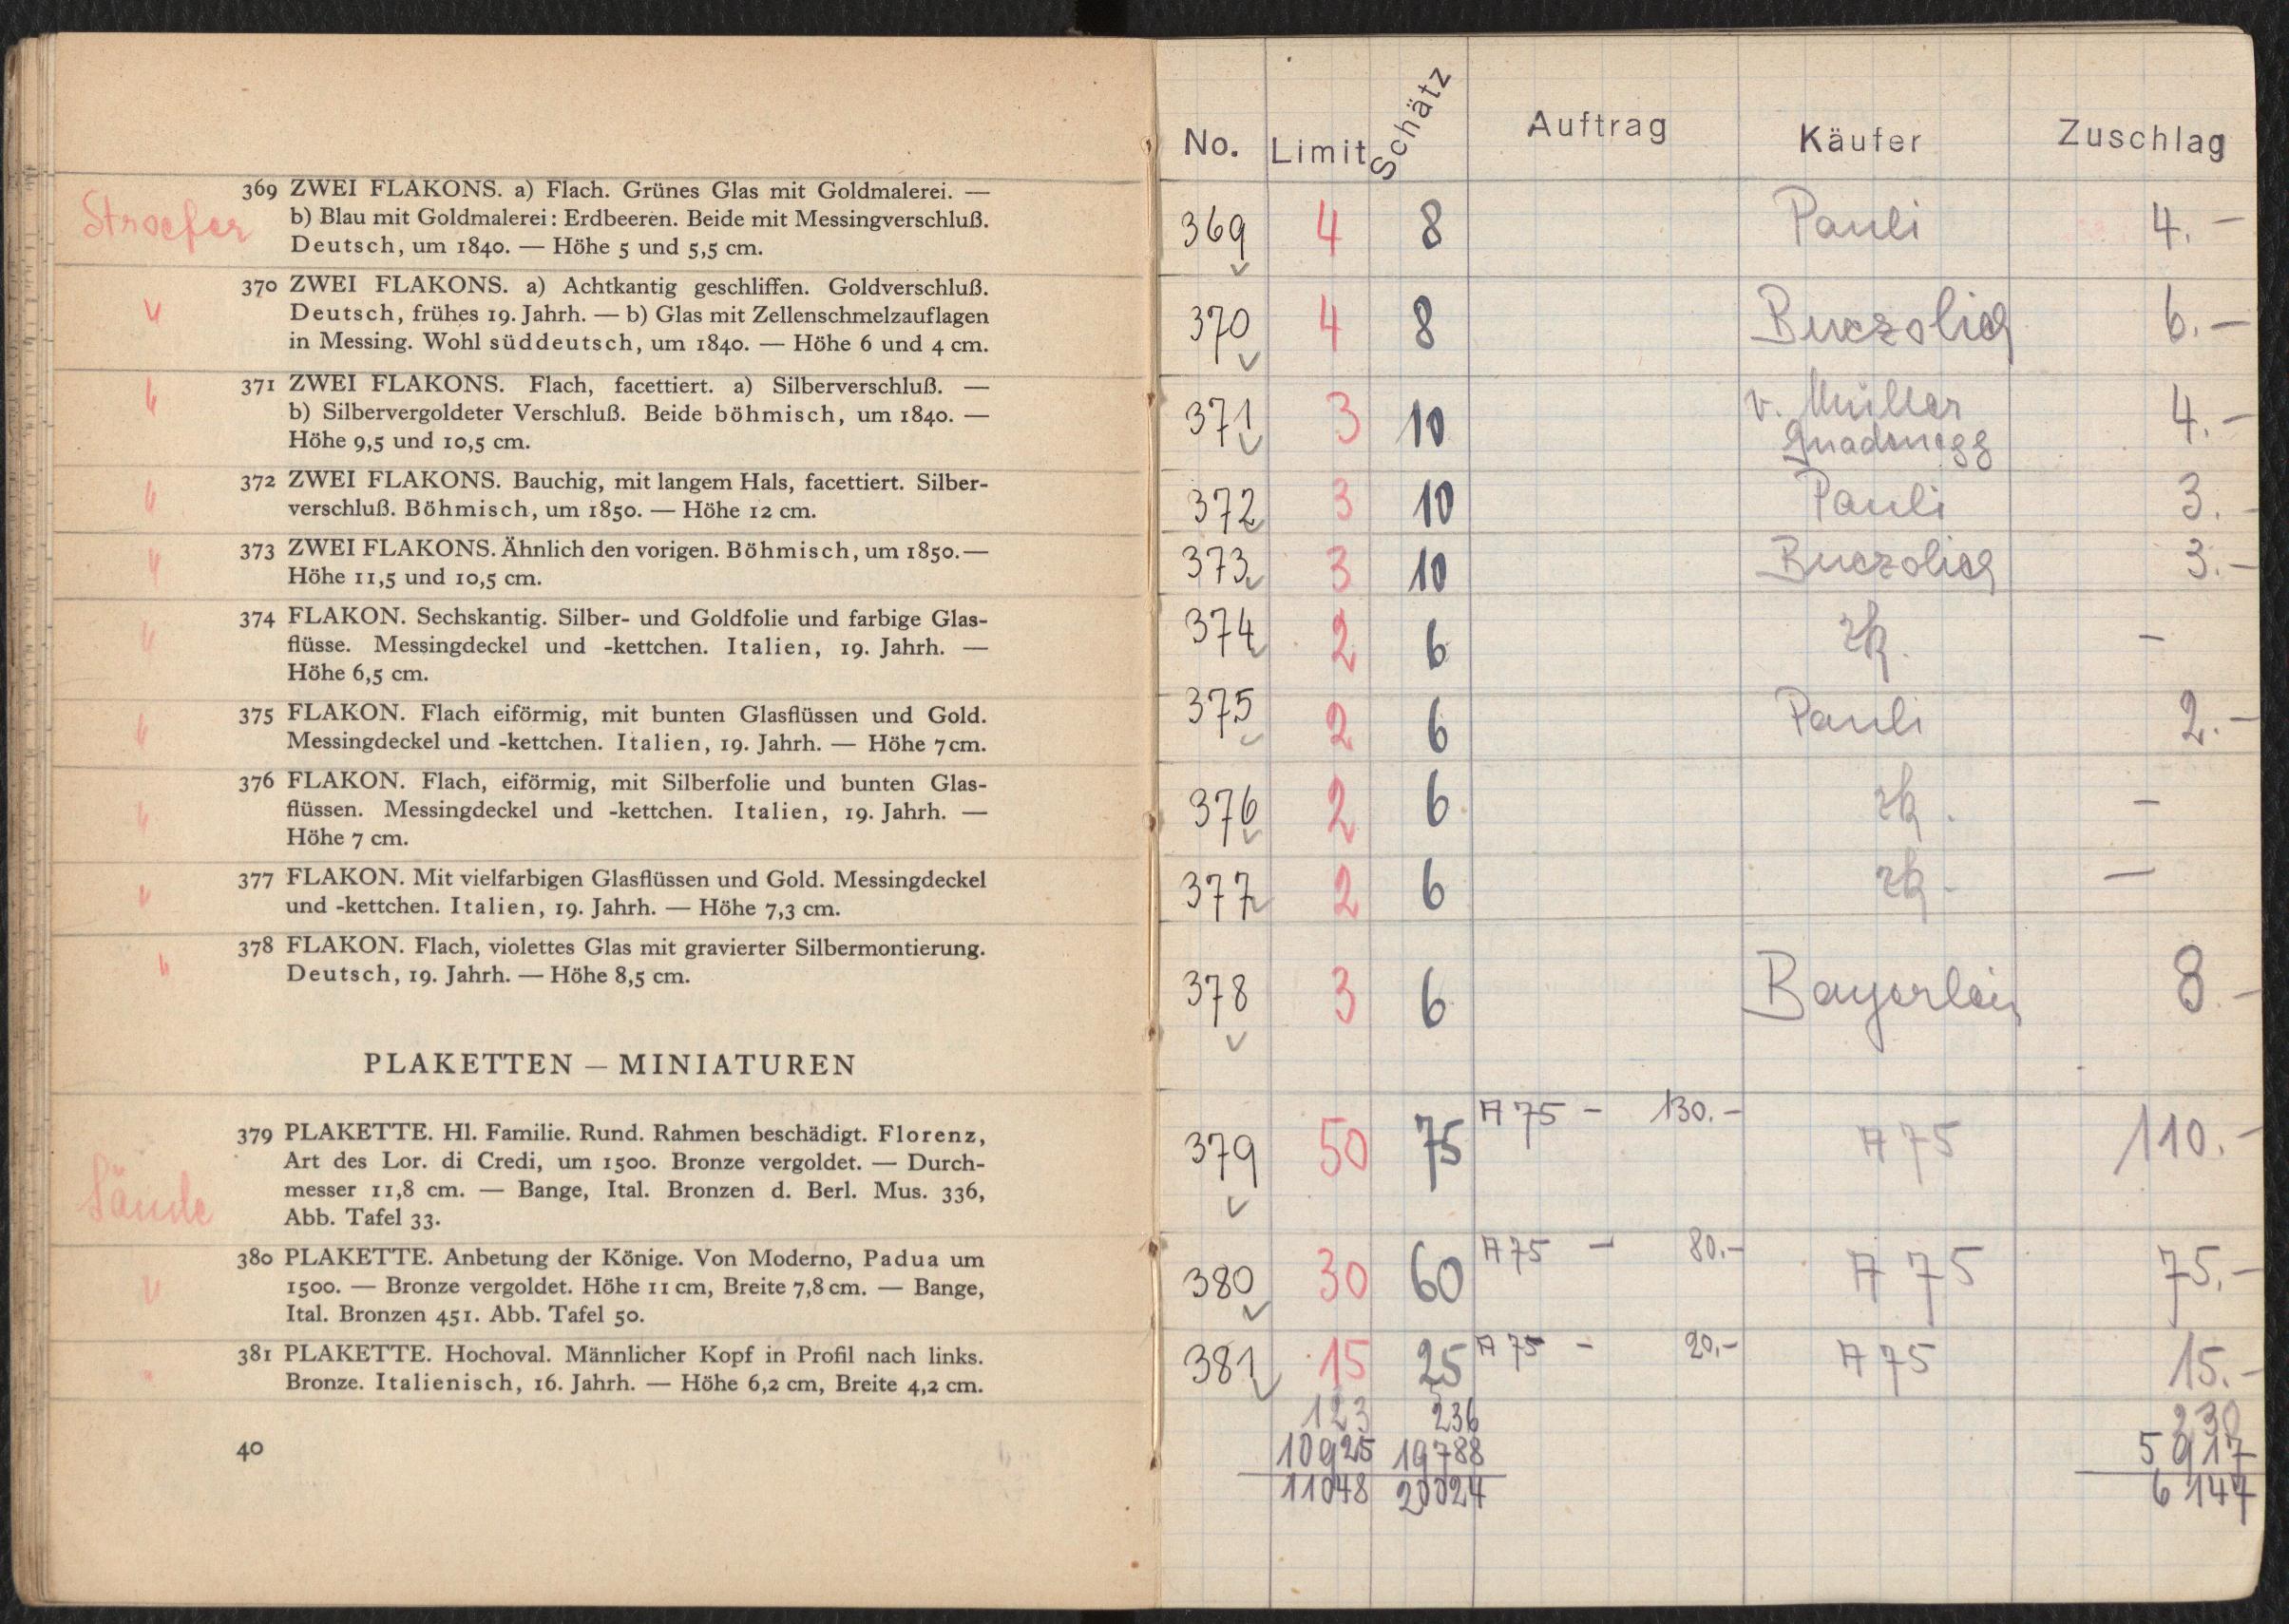 369 ZWEI FLAKONS. a) Flach. Grünes Glas mit Goldmalerei. —
Stroefer
b) Blau mit Goldmalerei: Erdbeeren. Beide mit Messingverschluß.
Deutsch, um 1840. — Höhe 5 und 5,5 cm.
370 ZWEI FLAKONS. a) Achtkantig geschliffen. Goldverschluß.
Deutsch, frühes 19. Jahrh. — b) Glas mit Zellenschmelzauflagen
in Messing. Wohl süddeutsch, um 1840. — Höhe 6 und 4 cm.
371 ZWEI FLAKONS. Flach, facettiert. a) Silberverschluß. —
b) Silbervergoldeter Verschluß. Beide böhmisch, um 1840. —
Höhe 9,5 und 10,5 cm.
372 ZWEI FLAKONS. Bauchig, mit langem Hals, facettiert. Silber-
verschluß. Böhmisch, um 1850. — Höhe 12 cm.
373 ZWEI FLAKONS. Ähnlich den vorigen. Böhmisch, um 1850. —
Höhe 11,5 und 10,5 cm.
374 FLAKON. Sechskantig. Silber- und Goldfolie und farbige Glas-
flüsse. Messingdeckel und -kettchen. Italien, 19. Jahrh. —
Höhe 6,5 cm.
375 FLAKON. Flach eiförmig, mit bunten Glasflüssen und Gold.
Messingdeckel und -kettchen. Italien, 19. Jahrh. — Höhe 7 cm.
376 FLAKON. Flach, eiförmig, mit Silberfolie und bunten Glas-
flüssen. Messingdeckel und -kettchen. Italien, 19. Jahrh. —
Höhe 7 cm.
377 FLAKON. Mit vielfarbigen Glasflüssen und Gold. Messingdeckel
und -kettchen. Italien, 19. Jahrh. — Höhe 7,3 cm.
378 FLAKON. Flach, violettes Glas mit gravierter Silbermontierung.
Deutsch, 19. Jahrh. — Höhe 8,5 cm.
PLAKETTEN — MINIATUREN
379 PLAKETTE. Hl. Familie. Rund. Rahmen beschädigt. Florenz,
Art des Lor. di Credi, um 1500. Bronze vergoldet. — Durch-
messer 11,8 cm. — Bange, Ital. Bronzen d. Berl. Mus. 336,
Abb. Tafel 33.
380 PLAKETTE. Anbetung der Könige. Von Moderno, Padua um
1500. — Bronze vergoldet. Höhe 11 cm, Breite 7,8 cm. — Bange,
Ital. Bronzen 451. Abb. Tafel 50.
381 PLAKETTE. Hochoval. Männlicher Kopf in Profil nach links.
Bronze. Italienisch, 16. Jahrh. — Höhe 6,2 cm, Breite 4,2 cm.
40
No. Limit Schätz Auftrag Käufer Zuschlag
369 4 8 Pauli 4.—
370 4 8 Buczolich 6.—
371 3 10 v. Müller 4.—
Gnadenegg
372 3 10 Pauli 3.—
373 3 10 Buczolich 3.—
374 2 6 zk. —
375 2 6 Pauli 2.—
376 2 6 zk. —
377 2 6 zk. —
378 3 6 Bayerlein 8.—
379 50 75 A 75 — 130.— A 75 110.—
380 30 60 A 75 — 80.— A 75 75.—
381 15 25 A 75 — 20.— A 75 15.—
123 236 230
10925 19788 5917
11048 20024 6147